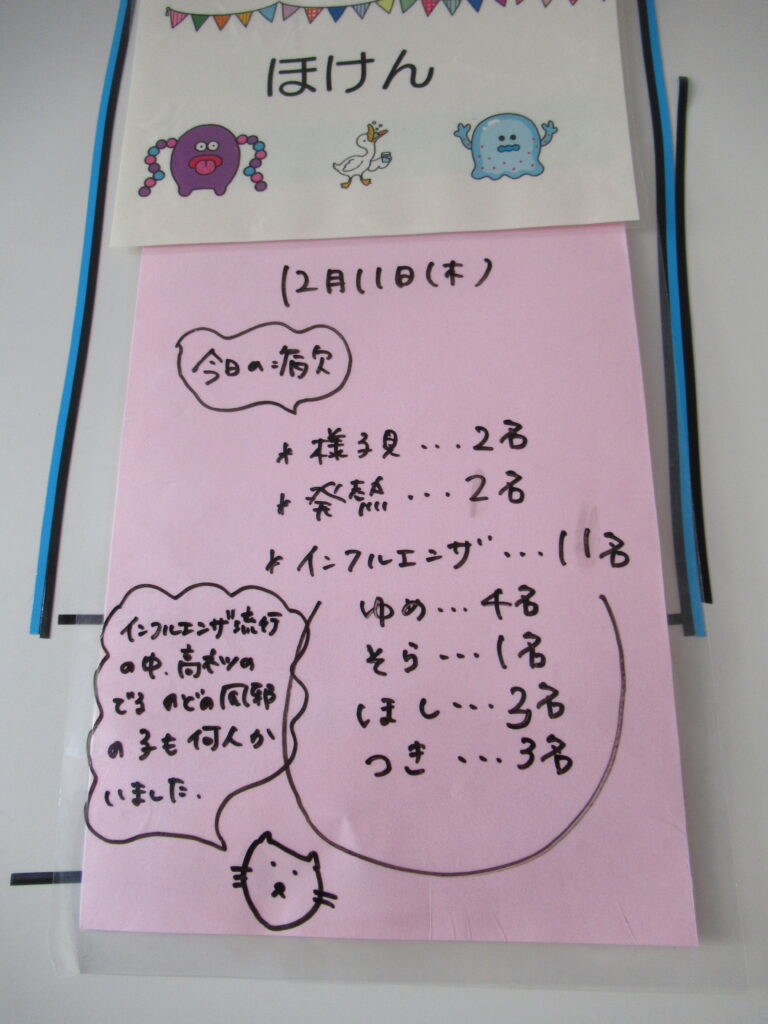 ほけん
12月11日(木)
今日の病欠
* 様子見...2名
* 発熱...2名
* インフルエンザ...11名
ゆめ...4名
そら...1名
ほし...3名
つき...3名
インフルエンザ流行
の中、高ネツの
でる のどの風邪
の子も何人か
いました.